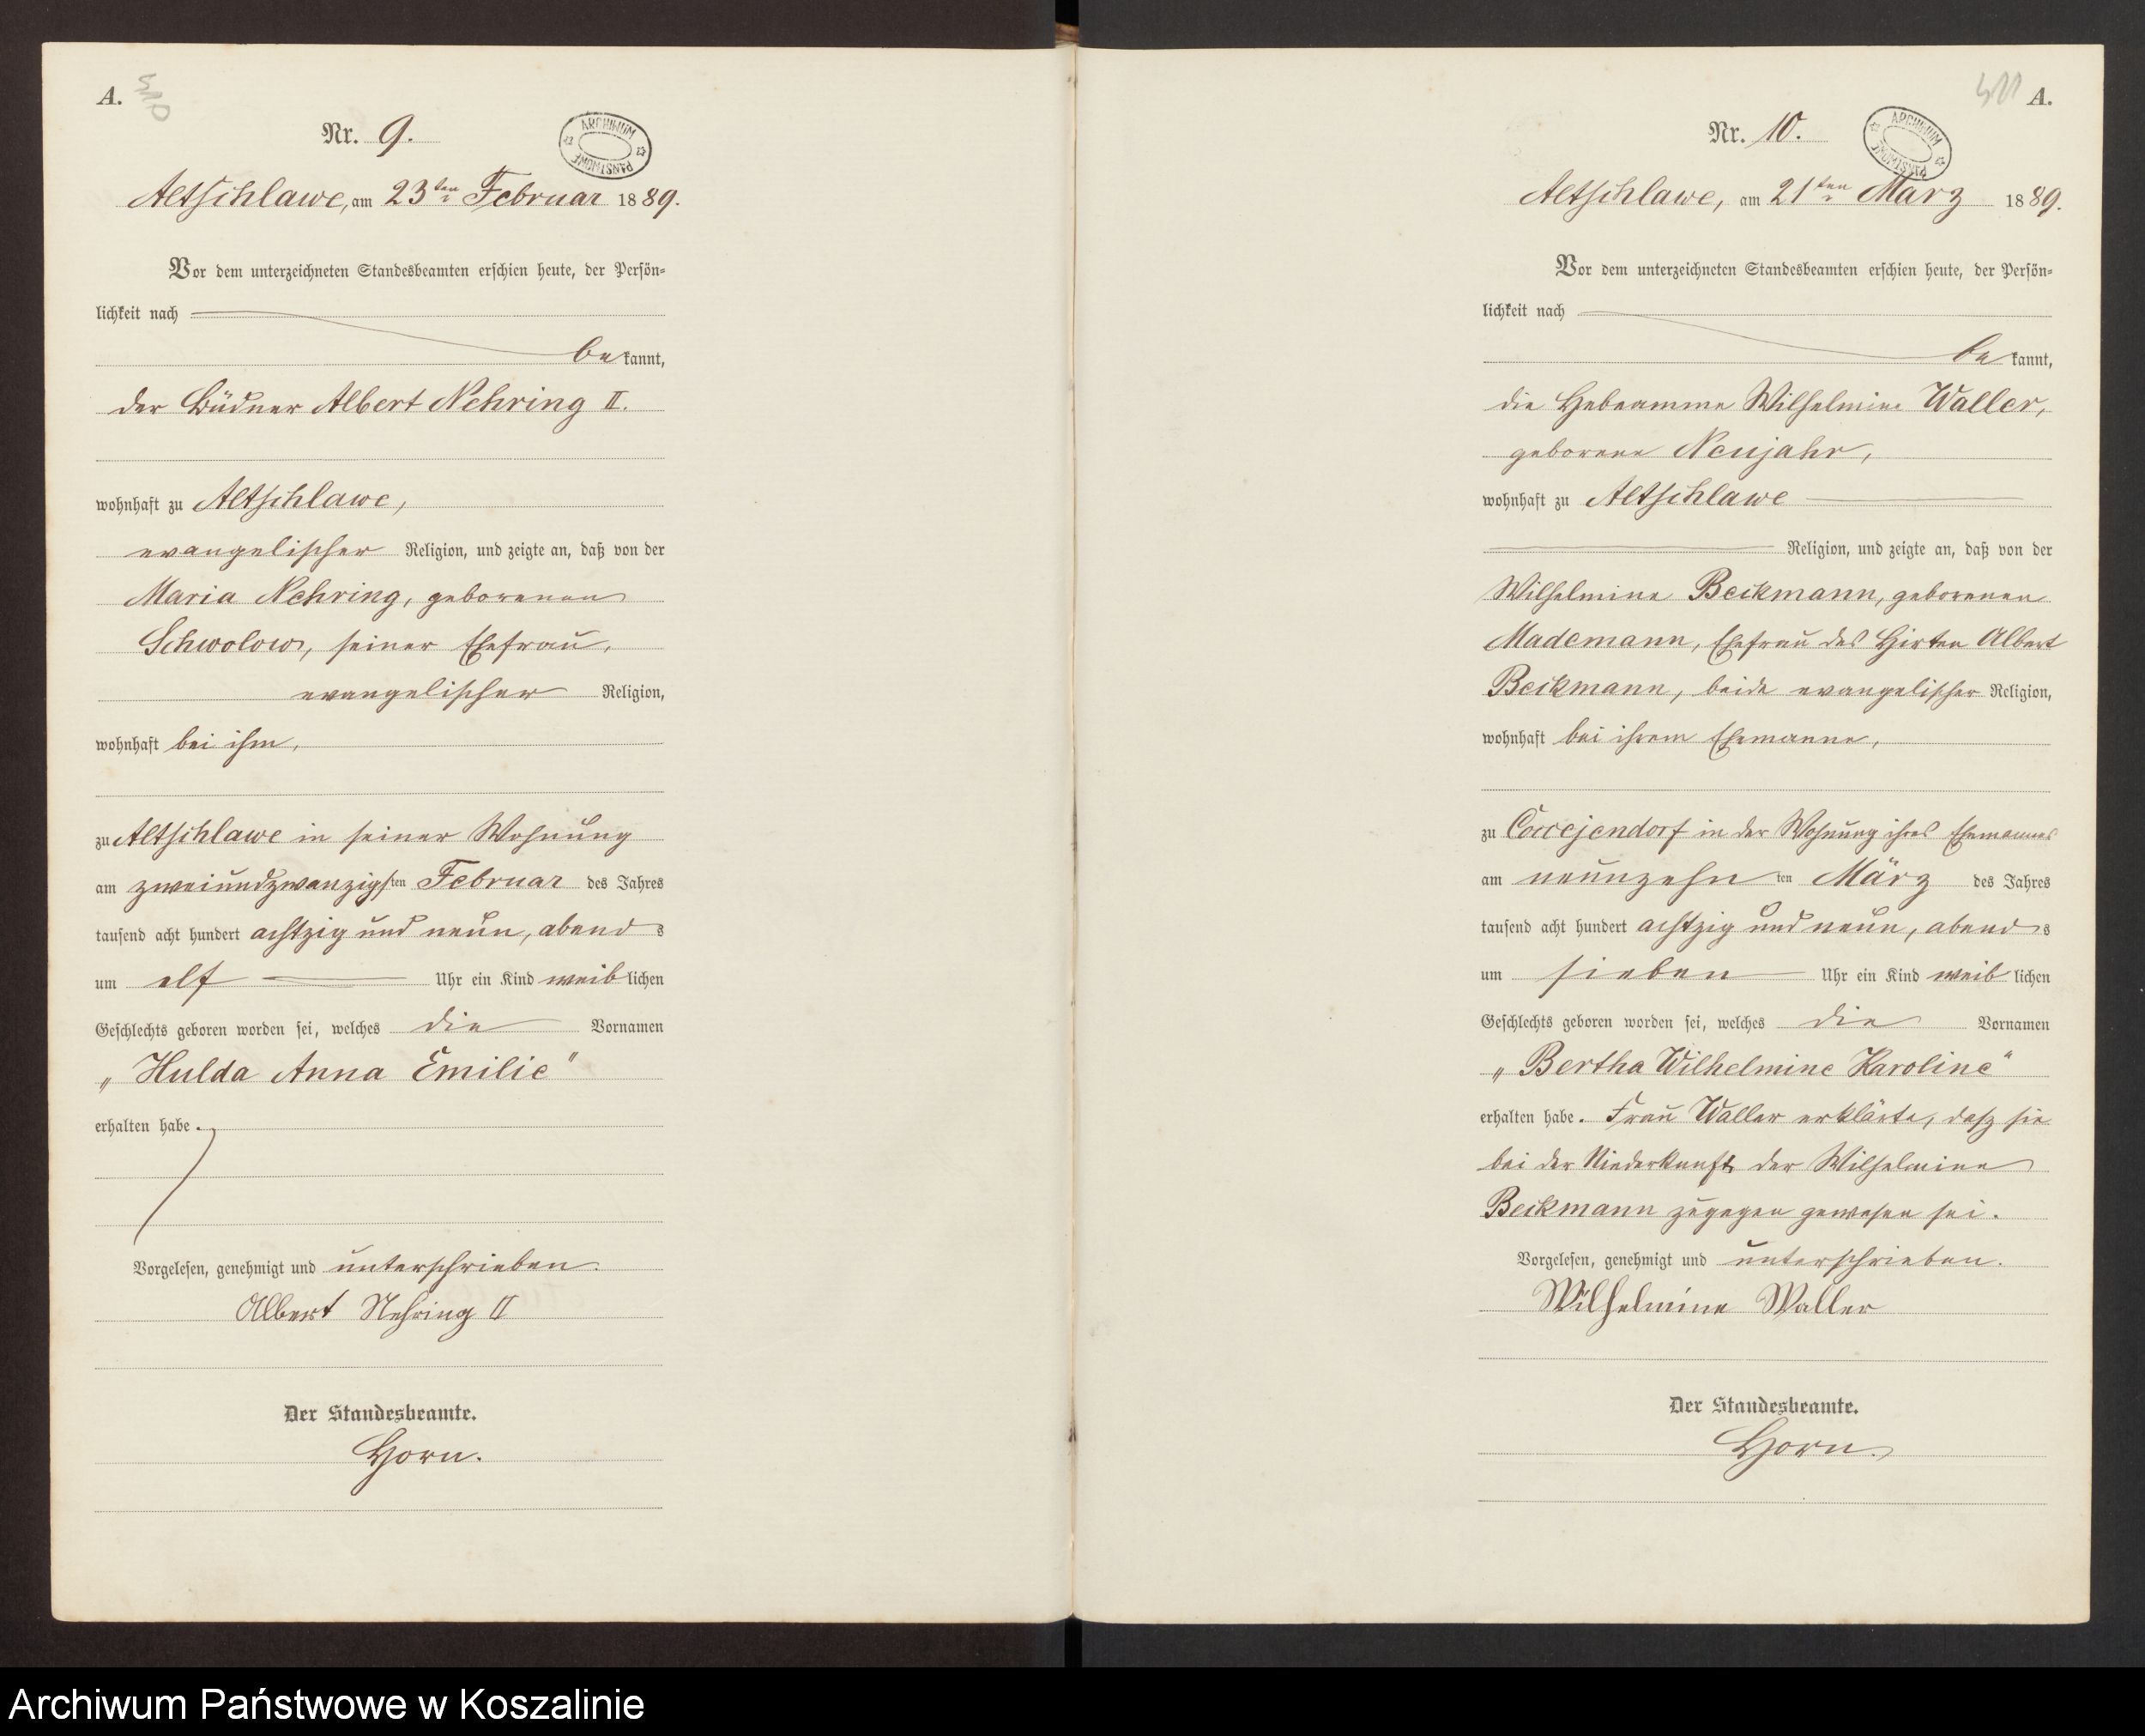 A.
Nr. 9.
ARCHIWUM PAŃSTWOWE
Altschlawe, am 23ten Februar 1889.
Vor dem unterzeichneten Standesbeamten erschien heute, der Persön-
lichkeit nach
bekannt,
der Büdner Albert Nehring II.
wohnhaft zu Altschlawe,
evangelischer Religion, und zeigte an, daß von der
Maria Nehring, geborenen
Schwolow, seiner Ehefrau,
evangelischer Religion,
wohnhaft bei ihm,
zu Altschlawe in seiner Wohnung
am zweiundzwanzigsten Februar des Jahres
tausend acht hundert achtzig und neun, abends
um elf Uhr ein Kind weiblichen
Geschlechts geboren worden sei, welches die Vornamen
„Hulda Anna Emilie"
erhalten habe.
Vorgelesen, genehmigt und unterschrieben.
Albert Nehring II
Der Standesbeamte.
Horn.
511 A.
Nr. 10.
ARCHIWUM PAŃSTWOWE
Altschlawe, am 21ten März 1889.
Vor dem unterzeichneten Standesbeamten erschien heute, der Persön-
lichkeit nach
bekannt,
die Hebeamme Wilhelmine Waller,
geborene Neujahr,
wohnhaft zu Altschlawe
Religion, und zeigte an, daß von der
Wilhelmine Beckmann, geborenen
Mademann, Ehefrau des Hirten Albert
Beckmann, beide evangelischer Religion,
wohnhaft bei ihrem Ehemanne,
zu Coccejendorf in der Wohnung ihres Ehemannes
am neunzehnten März des Jahres
tausend acht hundert achtzig und neun, abends
um sieben Uhr ein Kind weiblichen
Geschlechts geboren worden sei, welches die Vornamen
„Bertha Wilhelmine Karoline"
erhalten habe. Frau Waller erklärte, daß sie
bei der Niederkunft der Wilhelmine
Beckmann zugegen gewesen sei.
Vorgelesen, genehmigt und unterschrieben.
Wilhelmine Waller
Der Standesbeamte.
Horn.
Archiwum Państwowe w Koszalinie